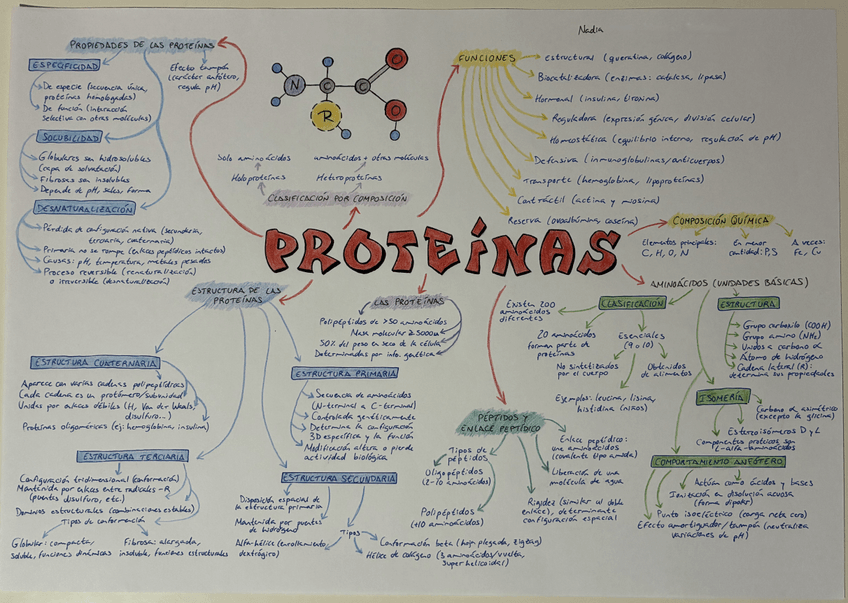 Nadia
PROTEÍNAS
PROPIEDADES DE LAS PROTEÍNAS
ESPECIFICIDAD
De especie (secuencia única,
proteínas homólogas)
De función (interacción
selectiva con otras moléculas)
Efecto tampón
(carácter anfótero,
regula pH)
SOLUBILIDAD
Globulares son hidrosolubles
(capa de solvatación)
Fibrosas son insolubles
Depende de pH, sales, forma
DESNATURALIZACIÓN
Pérdida de configuración nativa (secundaria,
terciaria, cuaternaria)
Primaria no se rompe (enlaces peptídicos intactos)
Causas: pH, temperatura, metales pesados
Proceso reversible (renaturalización)
o irreversible (desnaturalización)
N
C
C
O
O
R
Solo aminoácidos
aminoácidos + otras moléculas
Holoproteínas
Heteroproteínas
CLASIFICACIÓN POR COMPOSICIÓN
FUNCIONES
estructural (queratina, colágeno)
Biocatalizadora (enzimas: catalasa, lipasa)
Hormonal (insulina, tiroxina)
Reguladora (expresión génica, división celular)
Homeostática (equilibrio interno, regulación de pH)
Defensiva (inmunoglobulinas/anticuerpos)
Transporte (hemoglobina, lipoproteínas)
Contráctil (actina y miosina)
Reserva (ovoalbúmina, caseína)
COMPOSICIÓN QUÍMICA
Elementos principales:
C, H, O, N
En menor
cantidad: P, S
A veces:
Fe, Cu
LAS PROTEÍNAS
Polipéptidos de >50 aminoácidos
Masa molecular ≥5000u
50% del peso en seco de la célula
Determinadas por info. genética
AMINOÁCIDOS (UNIDADES BÁSICAS)
CLASIFICACIÓN
Existen 200
aminoácidos
diferentes
20 aminoácidos
forman parte de
proteínas
Esenciales
(9 o 10)
No sintetizados
por el cuerpo
Obtenidos
de alimentos
Ejemplos: leucina, lisina,
histidina (niños)
ESTRUCTURA
Grupo carboxilo (COOH)
Grupo amino (NH₂)
Unidos a carbono α
Átomo de hidrógeno
Cadena lateral (R):
determina sus propiedades
ISOMERÍA
Carbono α asimétrico
(excepto la glicina)
Estereoisómeros D y L
Componentes proteicos son
L-alfa-aminoácidos
COMPORTAMIENTO ANFÓTERO
Actúan como ácidos y bases
Ionización en disolución acuosa
(forma dipolar)
Punto isoeléctrico (carga neta cero)
Efecto amortiguador/tampón (neutraliza
variaciones de pH)
PÉPTIDOS Y
ENLACE PEPTÍDICO
Tipos de
péptidos
Oligopéptidos
(2-10 aminoácidos)
Polipéptidos
(+10 aminoácidos)
Enlace peptídico:
une aminoácidos
(covalente tipo amida)
Liberación de una
molécula de agua
Rigidez (similar al doble
enlace), determinante
configuración espacial
ESTRUCTURA DE LAS
PROTEÍNAS
ESTRUCTURA PRIMARIA
Secuencia de aminoácidos
(N-terminal a C-terminal)
Controlada genéticamente
Determina la configuración
3D específica y la función
Modificación altera o pierde
actividad biológica
ESTRUCTURA SECUNDARIA
Disposición espacial de
la estructura primaria
Mantenida por puentes
de hidrógeno
Tipos
Alfa-hélice (enrollamiento
dextrógiro)
Conformación beta (hoja plegada, zigzag)
Hélice de colágeno (3 aminoácidos/vuelta,
superhelicoidal)
ESTRUCTURA CUATERNARIA
Aparece con varias cadenas polipeptídicas
Cada cadena es un protómero/subunidad
Unidas por enlaces débiles (H, Van der Waals,
disulfuro...)
Proteínas oligoméricas (ej: hemoglobina, insulina)
ESTRUCTURA TERCIARIA
Configuración tridimensional (conformación)
Mantenida por enlaces entre radicales -R
(puentes disulfuro, etc.)
Dominios estructurales (combinaciones estables)
Tipos de conformación
Globular: compacta,
soluble, funciones dinámicas
Fibrosa: alargada,
insoluble, funciones estructurales